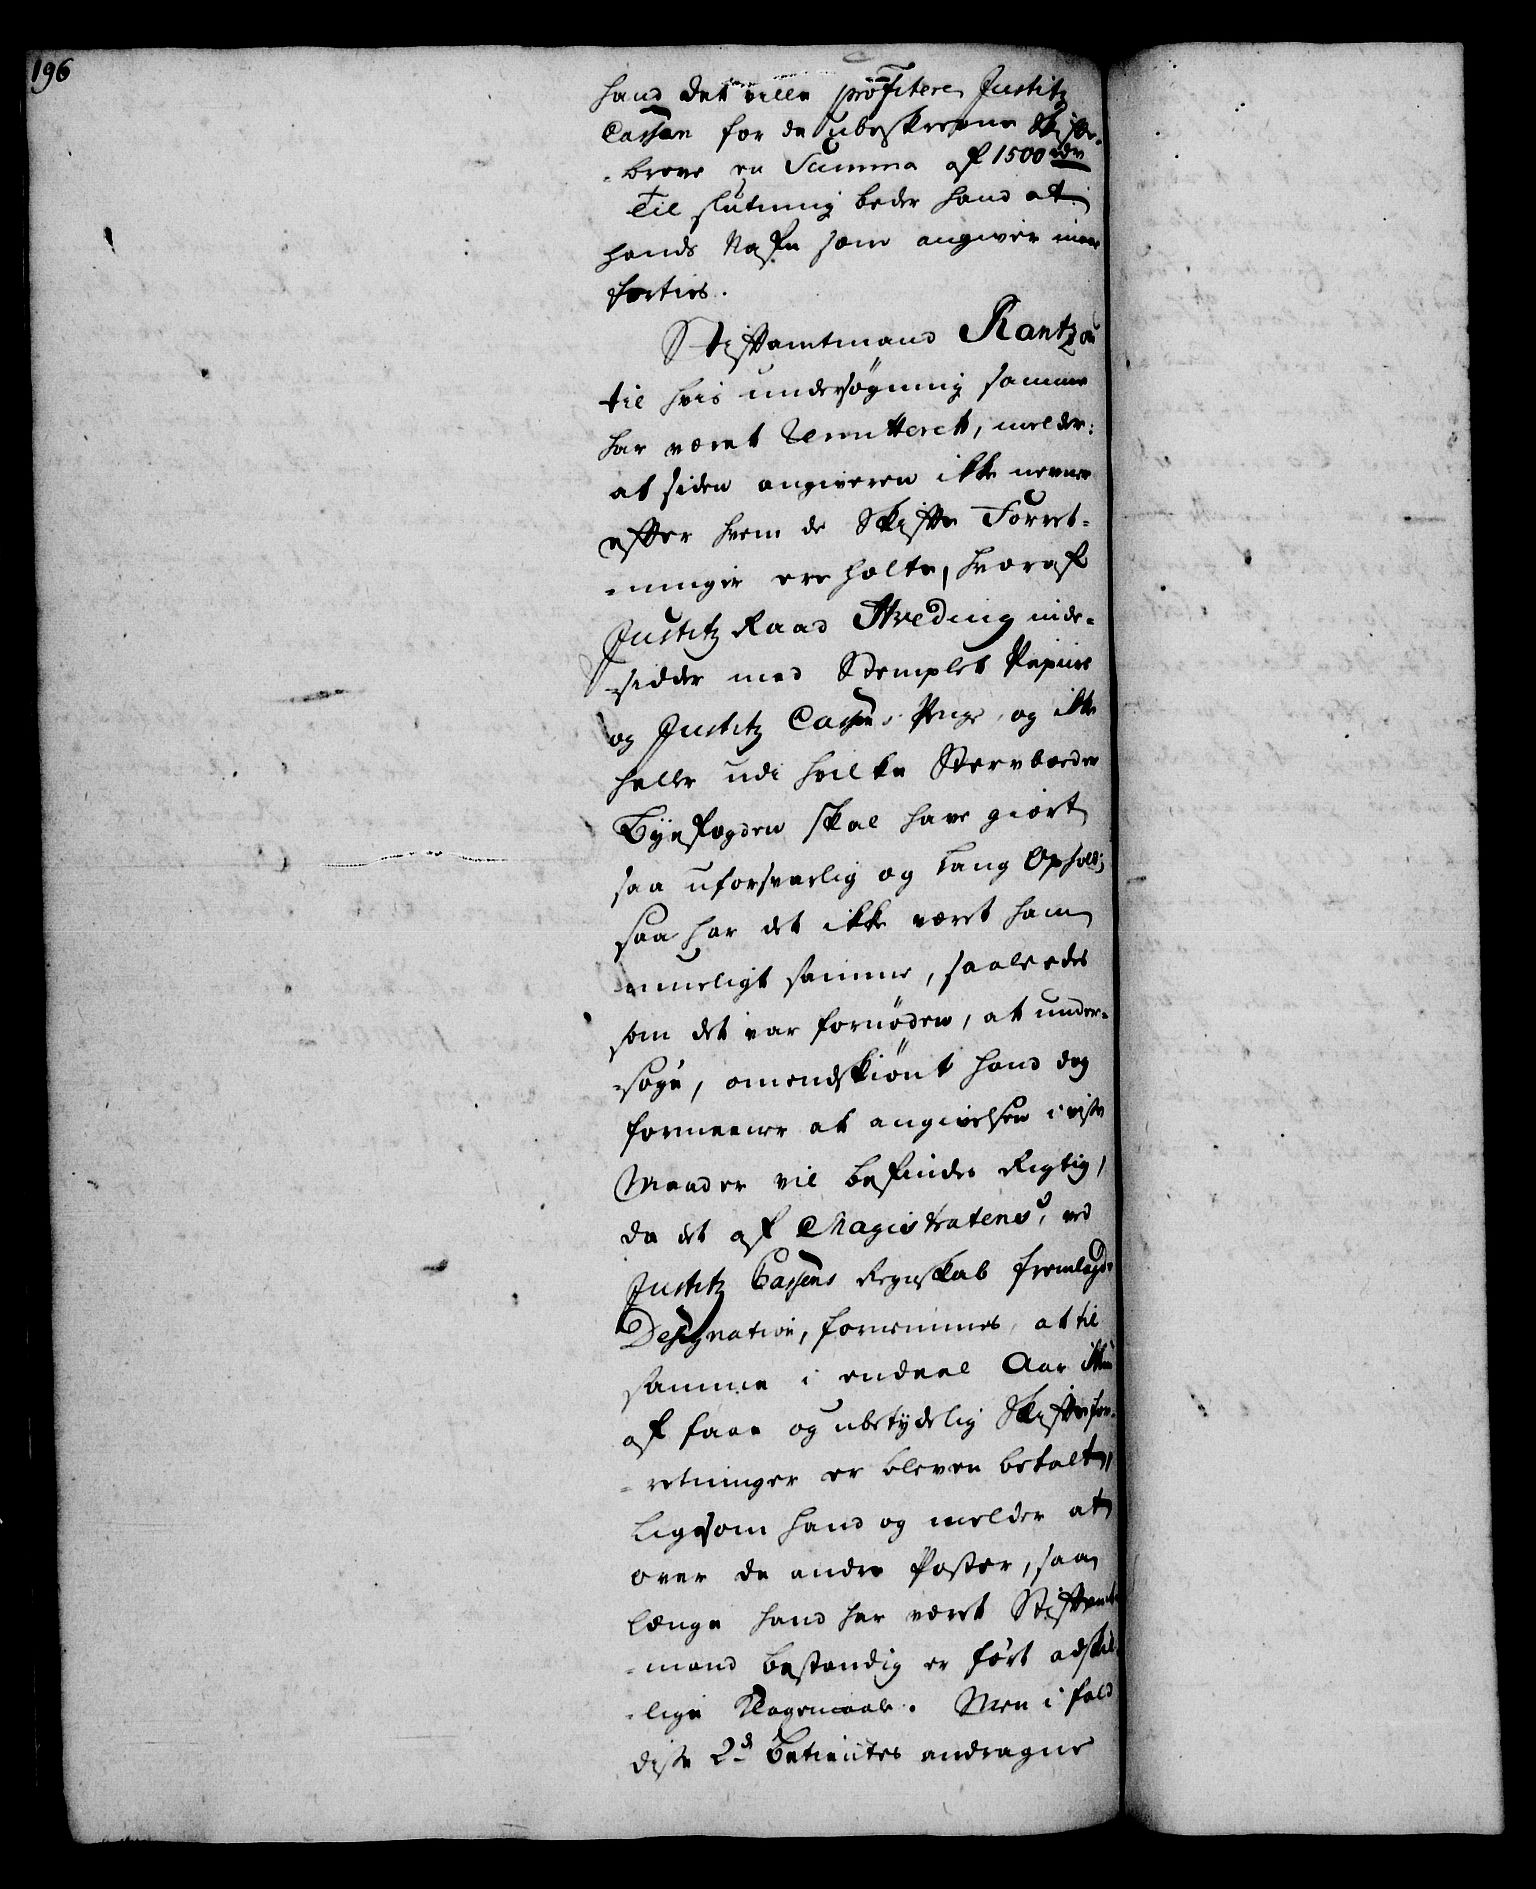 196
hand det ville profitere Justitz
Cassen for de ubeskrevne Skifte-
-breve en Summa af 1500 rdr
Til slutning beder hand at
hands Nafn som angiver maae
forties.
Stiftamtmand Rantzau
til hvis undersøgning samme
har været Remitteret, melder:
at siden angiveren ikke nevner
efter hvem de Skifte Forret-
-ninger ere holte, hvoraf
Justitz Raad Hveding inde-
-sidder med Stemplet Papiirs
og Justitz Cassens Penge, og ikke
heller udi hvilke Stervboeder
Byefogden skal have giort
saa uforsvarlig og lang Ophold;
saa har det ikke været ham
mueligt samme, saaledes
som det var fornøden, at under-
-søge, omendskiønt hand dog
formeener at angivelsen i visse
Maader vil befindes Rigtig,
da det af Magistratens, ved
Justitz Cassens Regnskab fremlagde
Designation, fornemmes, at til
samme i endeel Aar ikkun
af faae og ubetydelig Skiftefor-
-retninger er bleven betalt,
ligesom hand og melder at
over de andre Poster, saa
længe hand har været Stiftamt-
-mand bestandig er ført adskil-
-lige Klagemaale. Men i fald
disse 2de Betientes andragne